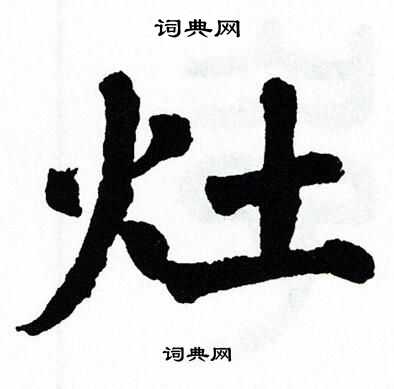 词典网
灶
词典网